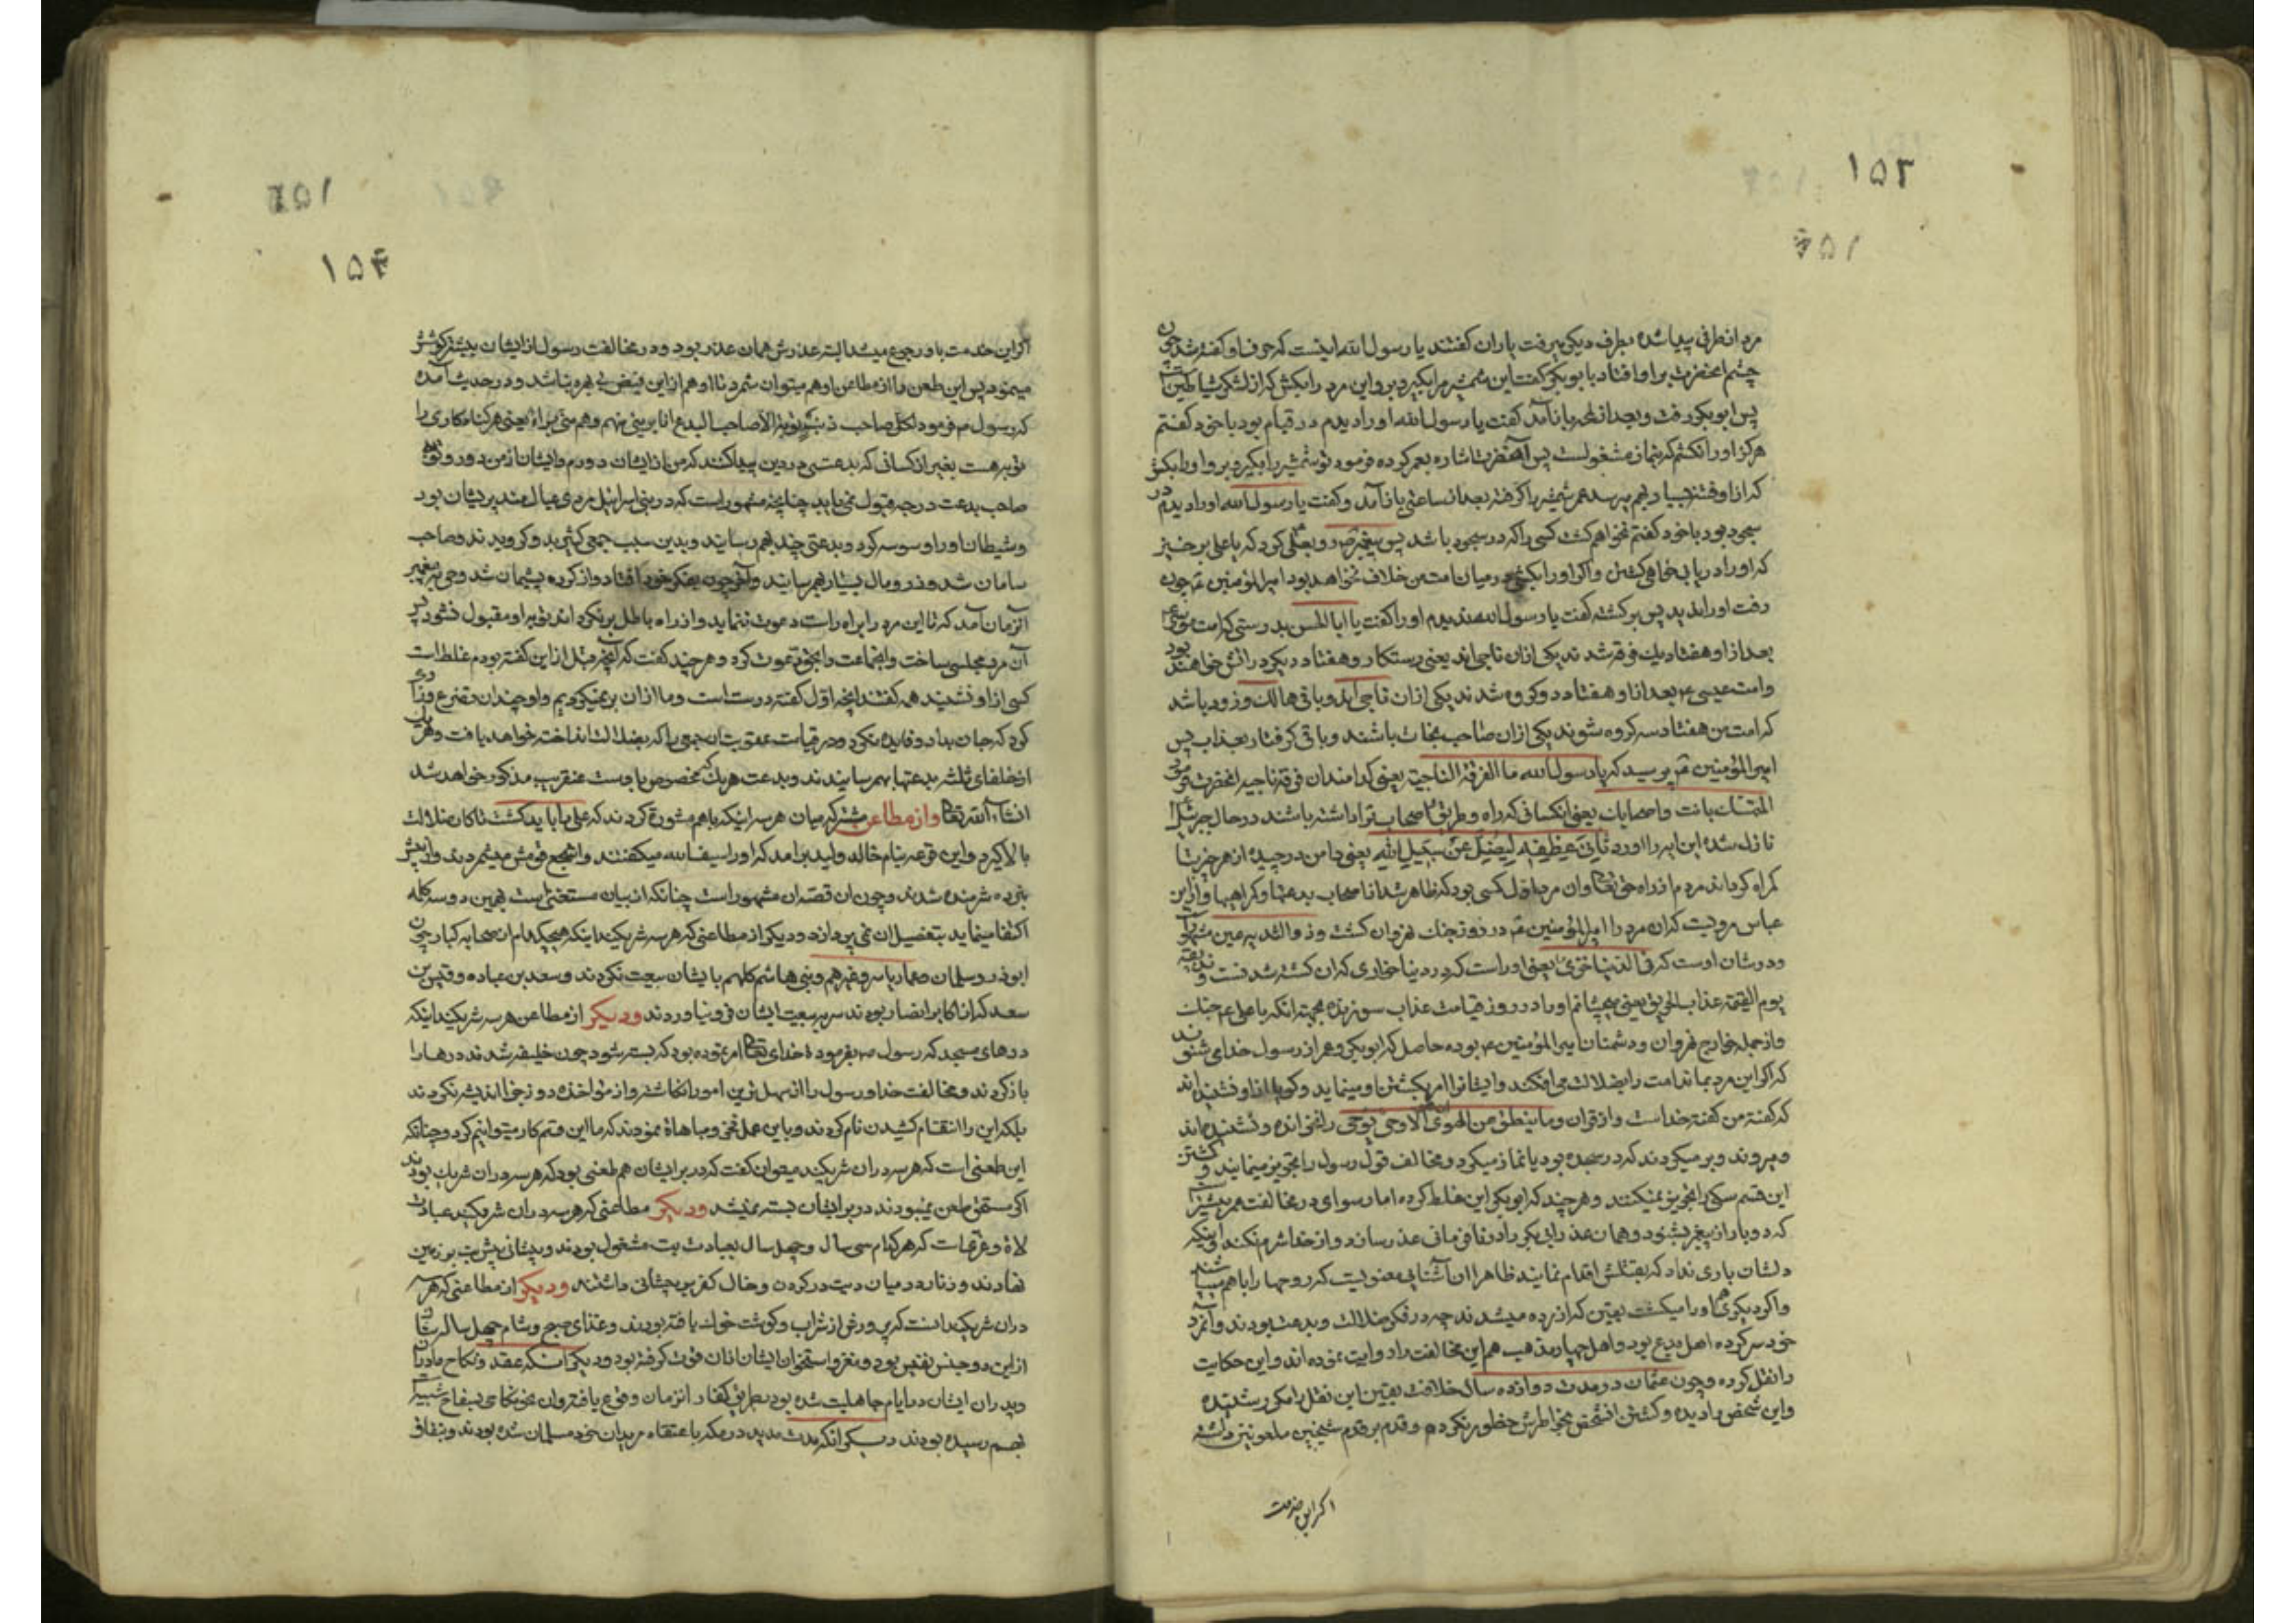 ۱۵۳
مرد از طرفی پیدا شده بطرف دیگر میرفت یاران گفتند یا رسول الله اینست که حرف او گفته شد چون
چشم انحضرت بر او افتاد با بوبکر گفت این شمشیر مرا بگیر و برو این مرد را بکش که از لشکر شیاطین است
پس ابوبکر رفت و بعد از لمحه باز آمد گفت یا رسول الله او را دیدم در قیام بود با خود گفتم
هرگز او را نکشم که بنماز مشغولست پس آنحضرت اشاره بعمر کرده فرمود تو شمشیر را بگیر و برو او را بکش
که از او فتنه بسیار بهم برسد عمر شمشیر را گرفته بعد از ساعتی باز آمد و گفت یا رسول الله او را دیدم در
سجود بود با خود گفتم نخواهم کشت کسی را که در سجود باشد پس پیغمبر ص رو بعلی کرد که یا علی برخیز
که او را دریابی خواهی کشت و اگر او را بکشی در میان امت من خلاف نخواهد بود امیرالمؤمنین ع چون
رفت او را ندید پس برگشته گفت یا رسول الله ندیدم او را گفت یا ابا الحسن بدرستی که امت موسی ع
بعد از او هفتاد یک فرقه شدند یکی ازان ناجی اند یعنی رستکار و هفتاد دیگر در اتش خواهند بود
و امت عیسی ع بعد از او هفتاد دو گروه شدند یکی ازان ناجی اند و باقی هالک و زود باشد
که امت من هفتاد سه گروه شوند یکی ازان صاحب نجات باشند و باقی گرفتار بعذاب پس
امیرالمؤمنین ع پرسید که یا رسول الله ما الفرقة الناجیة یعنی کدامند ان فرقه ناجیه انحضرت فرمود
المتمسک بانت و اصحابک یعنی انکسانی که راه و طریق تو و اصحاب ترا داشته باشند در حال جبرئیل
نازل شده این ایه را اورد ثانی عطفه لیضل عن سبیل الله یعنی دامن در چیده از هر چیز تا
گمراه گرداند مردم از راه حق تعالی و ان مرد اول کسی بود که ظاهر شد از اصحاب بدعتها و گمراهیها و از ابن
عباس مرویست که ان مرد را امیرالمؤمنین ع در روز جنک نهروان کشت و ذو الثدیه عین
و در شان اوست که فی الدنیا خزی یعنی او راست که در دنیا خواری که ان کشته شدنست و نذیقه
یوم القیمة عذاب الحریق یعنی بچشانم او را در روز قیامت عذاب سوزنده بجهة انکه با علی ع
و از جمله خوارج نهروان و دشمنان امیرالمؤمنین ع بوده حاصل که ابوبکر و عمر از رسول خدای شنوند
که اگر این مرد بماند امت را بضلالت می افکند و ایشانرا امر بکشتن او مینماید و گویا از او نشنیده اند
که گفته من گفته خداست و از قران و ما ینطق عن الهوی ان هو الا وحی یوحی را نخوانده و نشنیده اند
و میروند و بر میگردند که در سجده بود یا نماز میکرد و مخالف قول رسول را تجویز مینمایند و کشتن
این قسم سگی را تجویز نمیکنند و هر چند که ابوبکر این غلط کرده اما رسوای در مخالفت عمر بیشتر است
که دو بار از پیغمبر بشنود و همان عذر ابی بکر را در نافرمانی عذر رساند و از خدا شرم نکند و اینکه
دلشان یاری نداد که بقتلش اقدام نمایند ظاهرا ان آشنایی معنویست که روحها را با هم میباشد
و اگر دیگری هم او را میکشت یقین که ازرده میشدند چه در فکر ضلالت و بدعت بودند و آنمرد
خود سر کرده اهل بدع بود و اهل چهار مذهب هم این مخالفت را روایت نموده اند و این حکایت
را نقل کرده و چون عثمان در مدت دوازده سال خلافت یقین این نقل را مکرر شنیده
و این شخص را دیده و کشتن انشخص بخاطرش خطور نکرده و قدم بر قدم شیخین ملعونین داشته
اگر این خدمت
۱۵۴
اگر این خدمت باو رجوع میشد البته عذرش همان عذر بود و در مخالفت رسول از ایشان بیشتر کوشش
مینمود پس این طعن را از مطاعن او هم میتوان شمرد تا او هم از این فیض بی بهره نباشد و در حدیث آمده
که رسول ص فرمود لکل صاحب ذنب توبة الا صاحب البدع انا بریئ منهم و هم منی براء یعنی هر گناهکاری را
توبه هست بغیر از کسانی که بدعتی در دین پیدا کنند که من از ایشان دورم و ایشان از من دور و توبه
صاحب بدعت درجه قبول نمی یابد چنانچه مشهور است که در بنی اسرائیل مردی عیال مند پریشان بود
و شیطان او را وسوسه کرد و بدعتی چند بهم رسانید و بدین سبب جمعی کثیر بدو گرویدند و صاحب
سامان شد و زر و مال بسیار بهم رسانید و آخر چون بفکر خود افتاد و از کرده پشیمان شد وحی به پیغمبر
آنزمان آمد که تا این مرد را براه راست دعوت ننماید و از راه باطل بر نگرداند توبه او مقبول نشود پس
آن مرد مجلسی ساخت و انجماعت را بحق دعوت کرد و هر چند گفت که آنچه قبل ازاین گفته بودم غلط است
کسی از او نشنید همه گفتند انچه اول گفته درست است و ما ازان بر نمیگردیم و او چندان تضرع و زاری
کرد که جان بداد و فایده نکرد و در قیامت عقوبت ان جمعی را که بضلالت انداخته خواهد یافت و هر یک
از خلفای ثلثه بدعتها بهم رسانیدند و بدعت هر یک که مخصوص باوست عنقریب مذکور خواهد شد
انشاء الله تعالی و از مطاعن مشترکه میان هر سه اینکه با هم مشورة کردند که علی را باید کشت تا کان ضلالت
بالا گیرد و این قرعه بنام خالد ولید برامد که او را سیف الله میگفتند و اشجع قومش میشمردند و از پیش
نبرده شرمنده شدند و چون ان قصه ان مشهور است چنانکه از بیان مستغنی است بهمین دو سه کلمه
اکتفا مینماید بتفصیل ان نمی پردازد و دیگر از مطاعنی که هر سه شریکند اینکه هیچیک ام از صحابه کبار چون
ابوذر و سلمان و عمار یاسر و غیرهم و بنی هاشم کلهم با ایشان بیعت نکردند و سعد بن عباده و قیس بن
سعد که از اکابر انصار بودند سر به بیعت ایشان فرو نیاوردند و دیگر از مطاعن هر سه شریکند اینکه
درهای مسجد که رسول ص بفرموده خدای تعالی امر نموده بود که بسته شود چون خلیفه شدند درها را
باز کردند و مخالفت خدا و رسول را از سهل ترین امور انگاشته و از مؤاخذه دوزخ اندیشه نکردند
بلکه این را انتقام کشیدن نام کردند و باین عمل فخر و مباهاة نمودند که ما این قسم کار میتوانیم کرد و چنانکه
این طعنی است که هر سه دران شریکند میتوان گفت که در برایشان هم طعنی بود که هر سه دران شریک بودند
اگر مستحق طعن نمیبودند در بر ایشان بسته نمیشد و دیگر مطاعنی که هر سه دران شریکند عبادت
لاة و عزیست که هر کدام سی سال و چهل سال بعبادت بت مشغول بودند و پیشانی پیش بت بر زمین
نهادند و زنار در میان دست در گردن و خال کفر بر پیشانی داشتند و دیگر از مطاعنی که هر سه
دران شریکند انست که پرورش از شراب و گوشت خوک یافته بودند و غذای صبح و شام چهل ساله ایشان
از این دو جنس نفیس بود و مغز و استخوان ایشان ازان قوت گرفته بود و دیگر اینکه عقد و نکاح مادران
و پدران ایشان در ایام جاهلیت شده بود بطریق کفار انزمان وقوع یافته و ان نحو نکاحی بسفاح شبیه
بهم رسیده بودند دیگر انکه مدت مدید در مکه باعتقاد مریدان خود مسلمان شده بودند و بنفاق